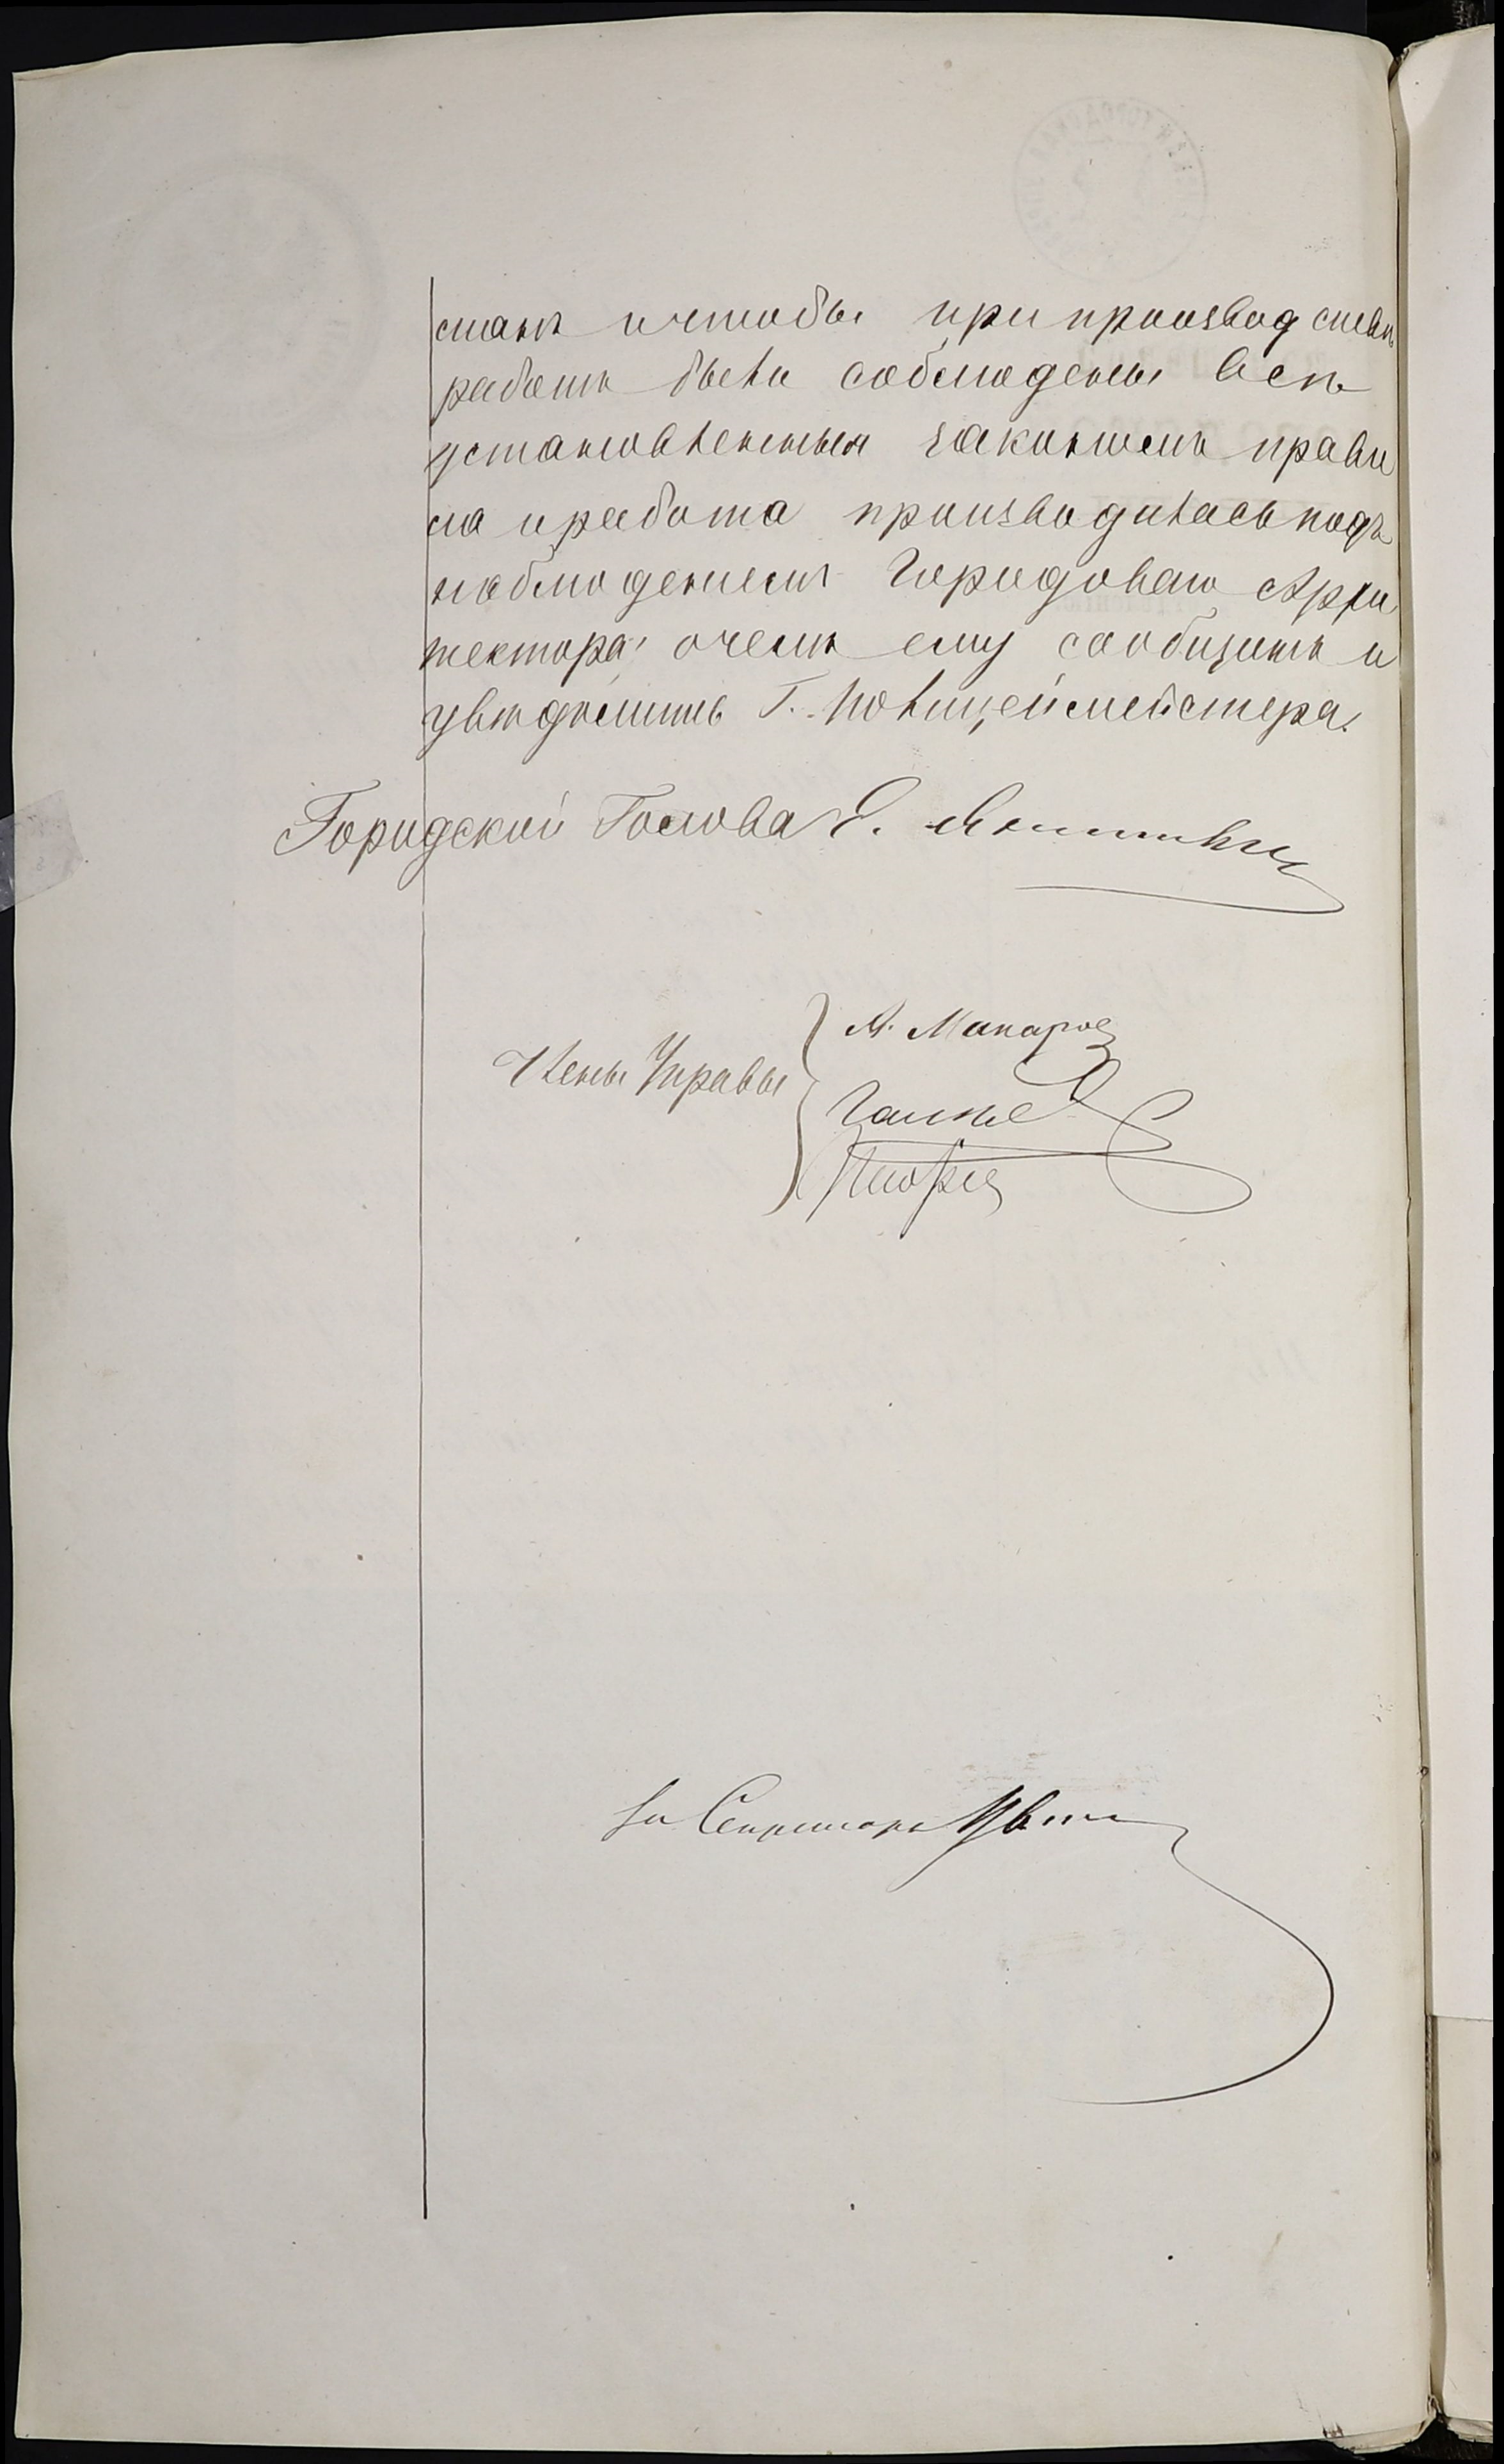 стамъ и чтобы при производствѣ
работъ были соблюдены всѣ
установленныя закономъ прави
ла и работа производилась подъ
наблюденіемъ Городоваго Архи
тектора; о чемъ ему сообщить и
увѣдомить Г. Полицеймейстера.
Городской Голова Е.
Члены Управы
А. Макаровъ
За Секретаря